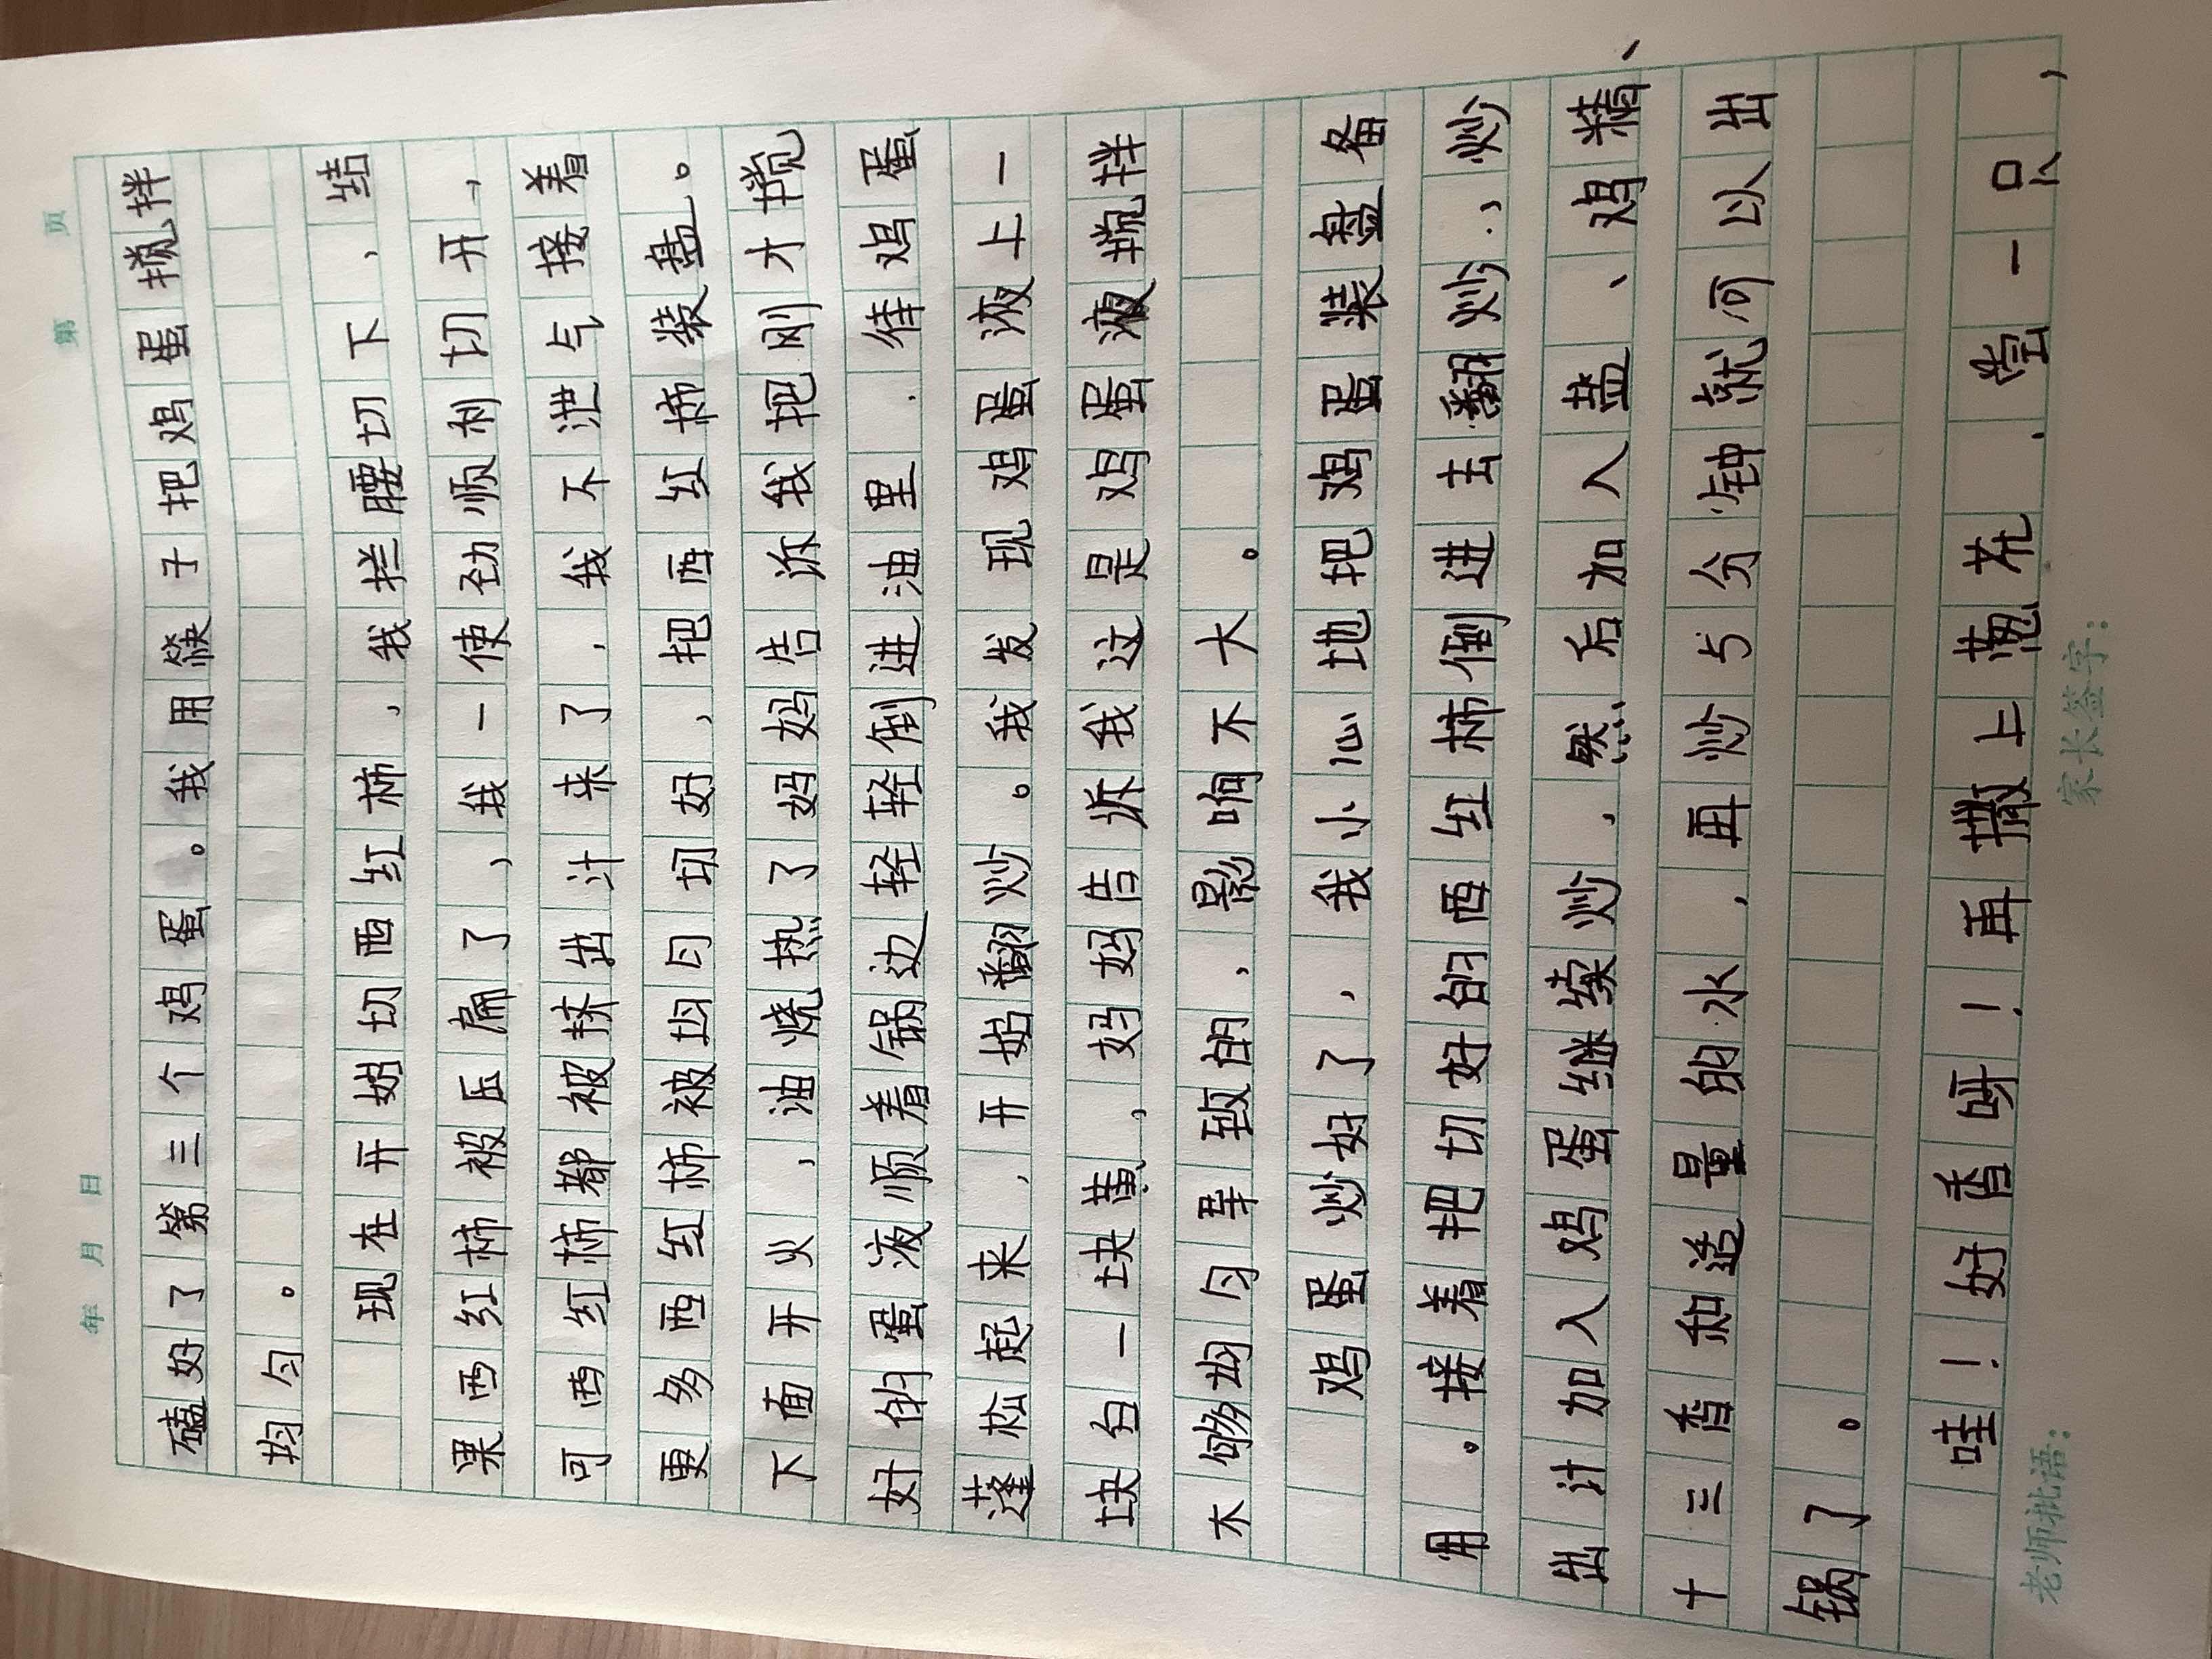 年 月 日 第 页
磕好了第三个鸡蛋。我用筷子把鸡蛋搅拌
均匀。
现在开始切西红柿,我拦腰切下,结
果西红柿被压扁了,我一使劲顺利切开,
可西红柿都被挤出汁来了,我不泄气接着
更多西红柿被均匀切好,把西红柿装盘。
下面开火,油烧热了妈妈告诉我把刚才搅
好的蛋液顺着锅边轻轻倒进油里.待鸡蛋
蓬松起来,开始翻炒。我发现鸡蛋液上一
块白一块黄,妈妈告诉我这是鸡蛋液搅拌
不够均匀导致的,影响不大。
鸡蛋炒好了,我小心地把鸡蛋装盘备
用。接着把切好的西红柿倒进去翻炒,炒
出汁加入鸡蛋继续炒,然后加入盐、鸡精、
十三香和适量的水,再炒5分钟就可以出
锅了。
哇!好香呀!再撒上葱花.尝一口,
老师批语: 家长签字: